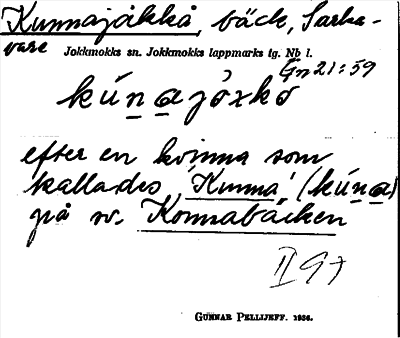 Kunnajåkkå, bäck, Sarka-
vare Jokkmokks sn. Jokkmokks lappmarks tg. Nb l.
Gn 21:59
kúṉa̲jȯxkȯ
efter en kvinna som
kallades 'Kunna' (kúṉa̲)
på sv. Konnabäcken
II 97
GUNNAR PELLIJEFF. 1936.